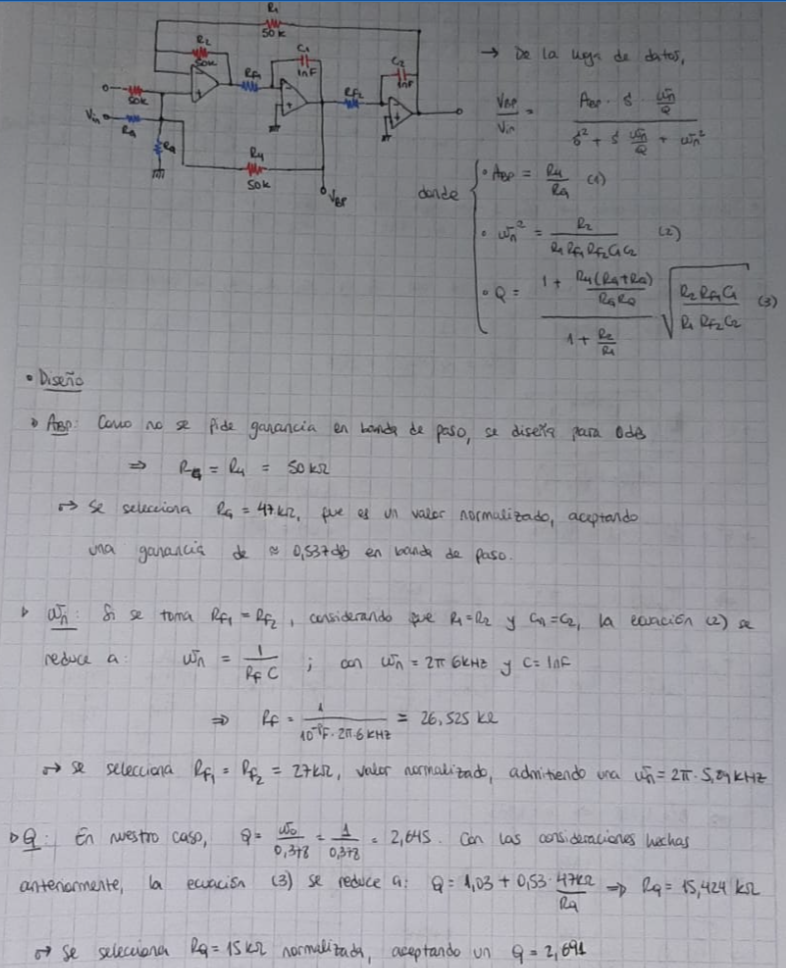 R1
50k
R2
50k
C1
1nF
C2
1nF
RF1
RF2
50k
Vin
RG
RQ
R4
50k
VBP
→ De la hoja de datos,
VBP / Vin = ABP · s · ωn/Q / s² + s ωn/Q + ωn²
donde
• ABP = R4 / RG (1)
• ωn² = R2 / R1 RF1 RF2 C1 C2 (2)
• Q = 1 + R4(RG+RQ) / RG RQ / 1 + R2/R1 √ R2 RF1 C1 / R1 RF2 C2 (3)
• Diseño
▹ ABP: Como no se pide ganancia en banda de paso, se diseña para 0dB
⇒ RG = R4 = 50 kΩ
↦ Se selecciona RG = 47 kΩ, que es un valor normalizado, aceptando
una ganancia de ≈ 0,537 dB en banda de paso.
▹ ωn: Si se toma RF1 = RF2, considerando que R1=R2 y C1=C2, la ecuación (2) se
reduce a: ωn = 1 / RF C ; con ωn = 2π 6kHz y C = 1nF
⇒ RF = 1 / 10⁻⁹F·2π·6kHz = 26,525 kΩ
↦ Se selecciona RF1 = RF2 = 27kΩ, valor normalizado, admitiendo una ωn = 2π · 5,89 kHz
▹ Q: En nuestro caso, Q = ωo / 0,378 = 1 / 0,378 = 2,645. Con las consideraciones hechas
anteriormente, la ecuación (3) se reduce a: Q = 1,03 + 0,53 · 47kΩ / RQ ⇒ RQ = 15,424 kΩ
↦ Se selecciona RQ = 15 kΩ normalizada, aceptando un Q = 2,691